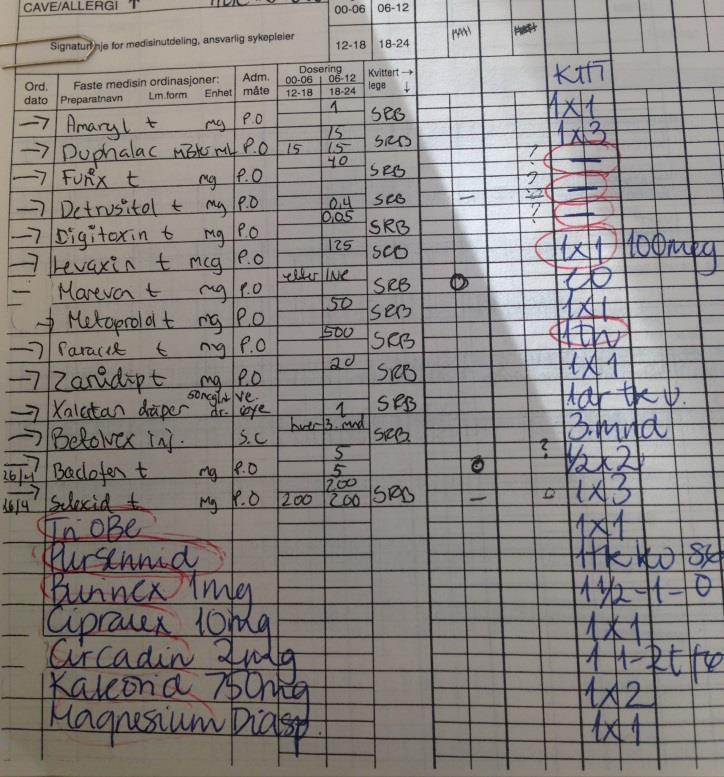 CAVE/ALLERGI
00-06 06-12
Signatur nje for medisinutdeling, ansvarlig sykepleier
12-18 18-24
Ord. dato Faste medisin ordinasjoner: Adm. måte Dosering Kvittert → lege ↓
Preparatnavn Lm.form Enhet 00-06 06-12 12-18 18-24
→ Amaryl t mg P.O 1 SRB 1x1
→ Duphalac ml P.O 15 15 15 SRB 1x3
→ Furix t mg P.O 40 SRB ? —
→ Detrusitol t mg P.O 0,4 SRB — ? —
→ Digitoxin t mg P.O 0,05 SRB ? —
→ Levaxin t mcg P.O 125 SRB 1x1 100mcg
— Marevan t mg P.O etter INR SRB O
→ Metoprolol t mg P.O 50 SRB 1x1
→ Paracet t mg P.O 500 SRB
→ Zanidip t mg P.O 20 SRB 1x1
→ Xalatan dråper 50mcg/ml dr. ve. øye 1 SRB 1dr
→ Betolvex inj. S.C hver 3. mnd SRB 3. mnd
26/4 → Baclofen t mg P.O 5 5 ? ½x2
26/4 → Selexid t mg P.O 200 200 200 SRB — 1x3
TriOBe 1x1
Pursennid
Burinex 1mg 1½-1-0
Cipralex 10mg 1x1
Circadin 2mg 1-2t
Kaleorid 750mg 1x2
Magnesium Diasp. 1x1